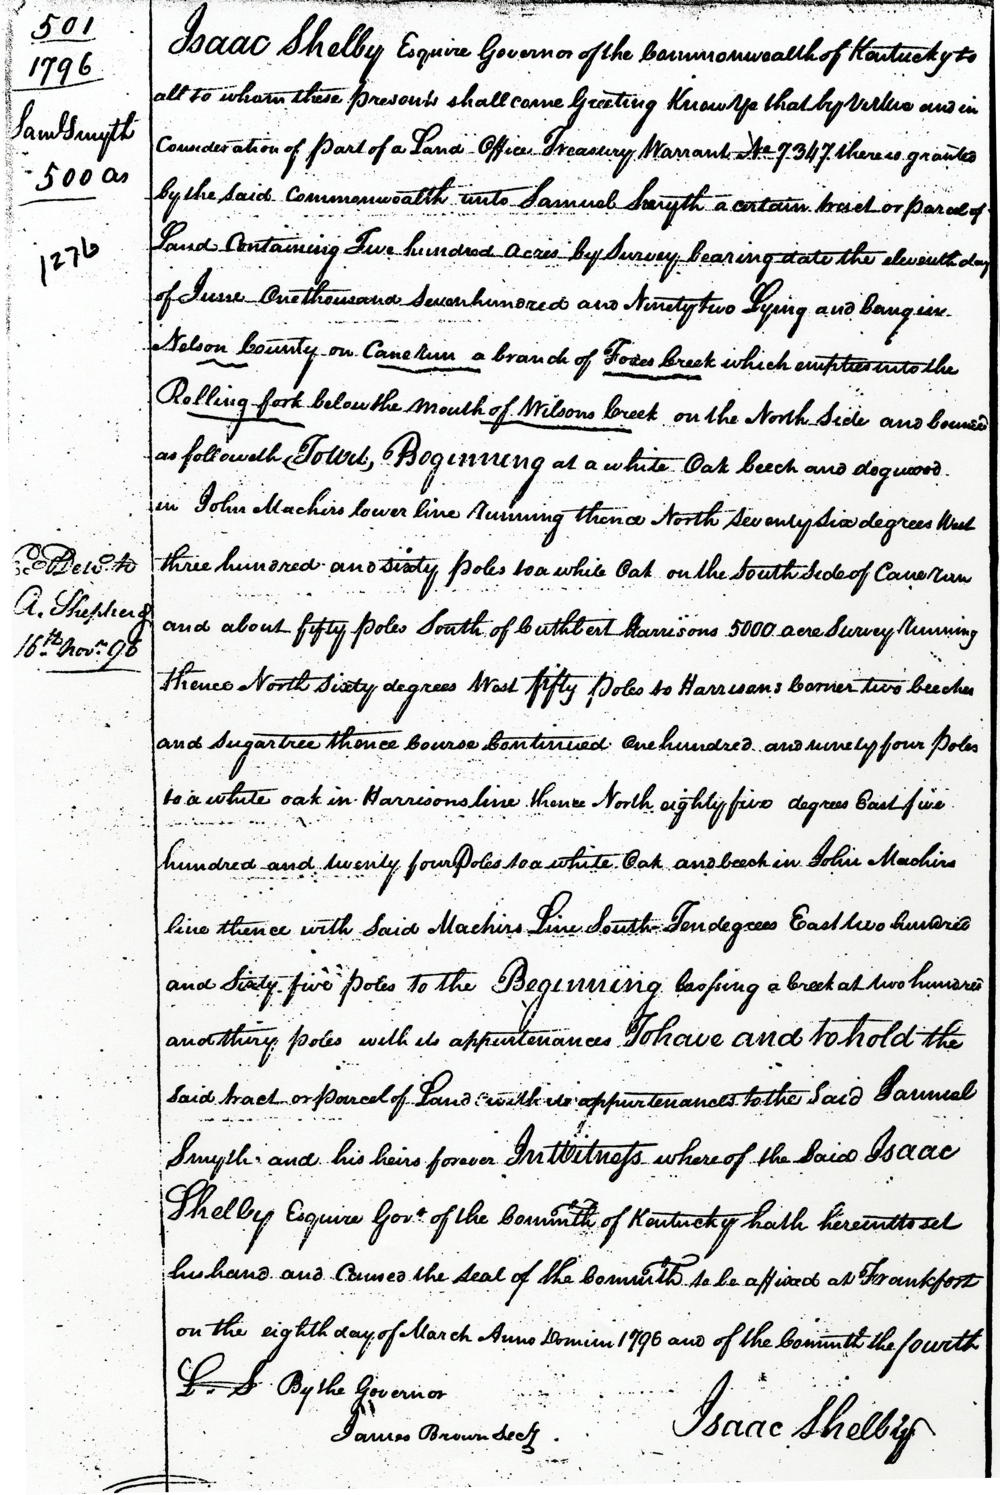 501
1796
Saml Smyth
500 as
1276
Exd Deld to
A. Shepherd
16th Novr 96
Isaac Shelby Esquire Governor of the Commonwealth of Kentucky to
all to whom these presents shall come Greeting Know Ye that by Virtue and in
Consideration of Part of a Land Office Treasury Warrant No 7347 there is granted
by the Said Commonwealth unto Samuel Smyth a certain tract or parcel of
Land Containing Five hundred Acres by Survey bearing date the eleventh day
of June One thousand Seven hundred and Ninety two Lying and being in
Nelson County on Cane run a branch of Foxes Creek which empties into the
Rolling fork below the mouth of Wilsons Creek on the North Side and bounded
as followeth, Towit, Beginning at a white Oak beech and dogwood
in John Machirs lower line running thence North Seventy Six degrees West
three hundred and sixty poles to a white Oak on the South Side of Cane run
and about fifty poles South of Cuthbert Harrisons 5000 acre Survey running
thence North Sixty degrees West fifty Poles to Harrisons Corner two beeches
and sugartree thence Course Continued One hundred and ninety four Poles
to a white oak in Harrisons line thence North eighty five degrees East five
hundred and twenty four Poles to a white Oak and beech in John Machirs
line thence with Said Machirs Line South Ten degrees East two hundred
and Sixty five poles to the Beginning Crossing a Creek at two hundred
and thirty poles with its appurtenances To have and to hold the
Said tract or parcel of Land with its appurtenances to the Said Samuel
Smyth and his heirs forever In Witness where of the Said Isaac
Shelby Esquire Govr of the Commth of Kentucky hath hereunto set
his hand and Caused the Seal of the Commth to be affixed at Frankfort
on the eighth day of March Anno Domini 1796 and of the Commth the fourth
L. S By the Governor
James Brown Secy.
Isaac Shelby